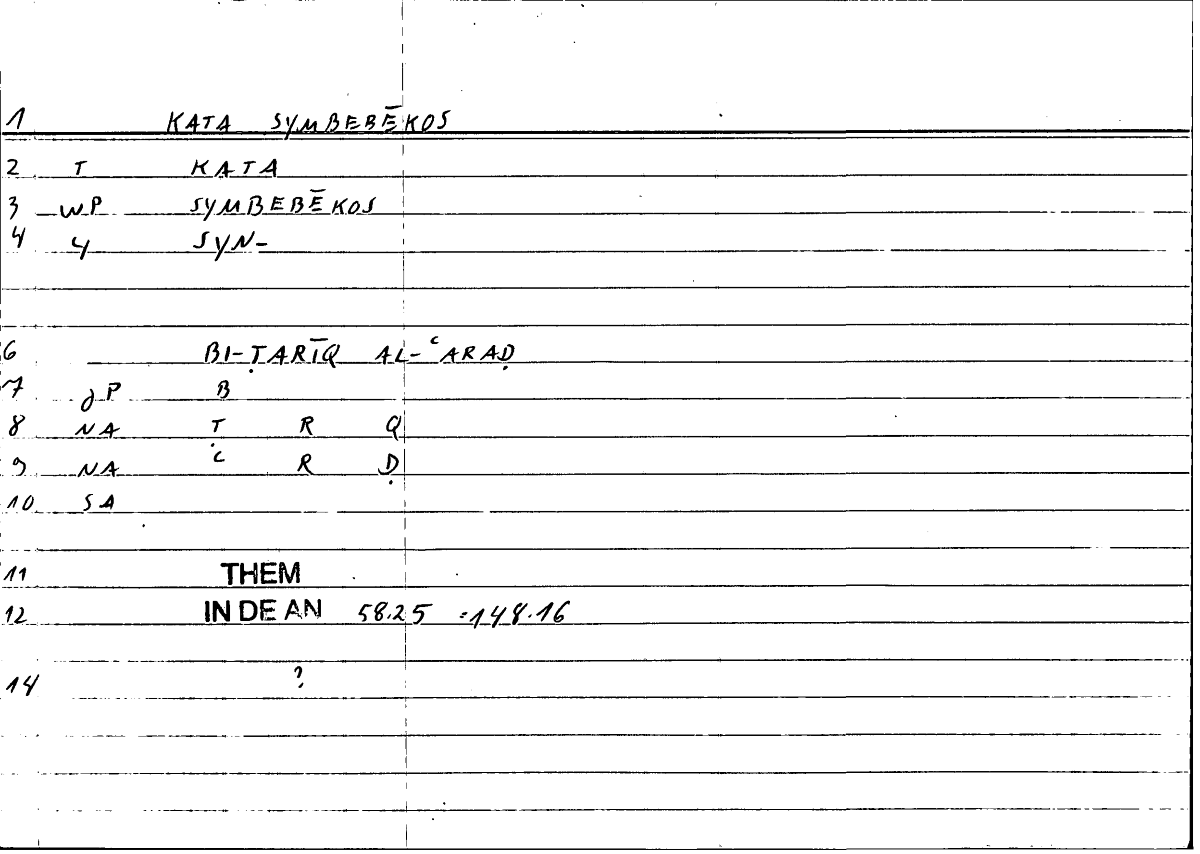 1 KATA SYMBEBĒKOS
2 T KATA
3 WP SYMBEBĒKOS
4 4 SYN-
6 BI-ṬARĪQ AL-ʿARAḌ
7 P B
8 NA T R Q
9 NA ʿ R Ḍ
10 SA
11 THEM
12 IN DE AN 58.25 =148.16
14 ?